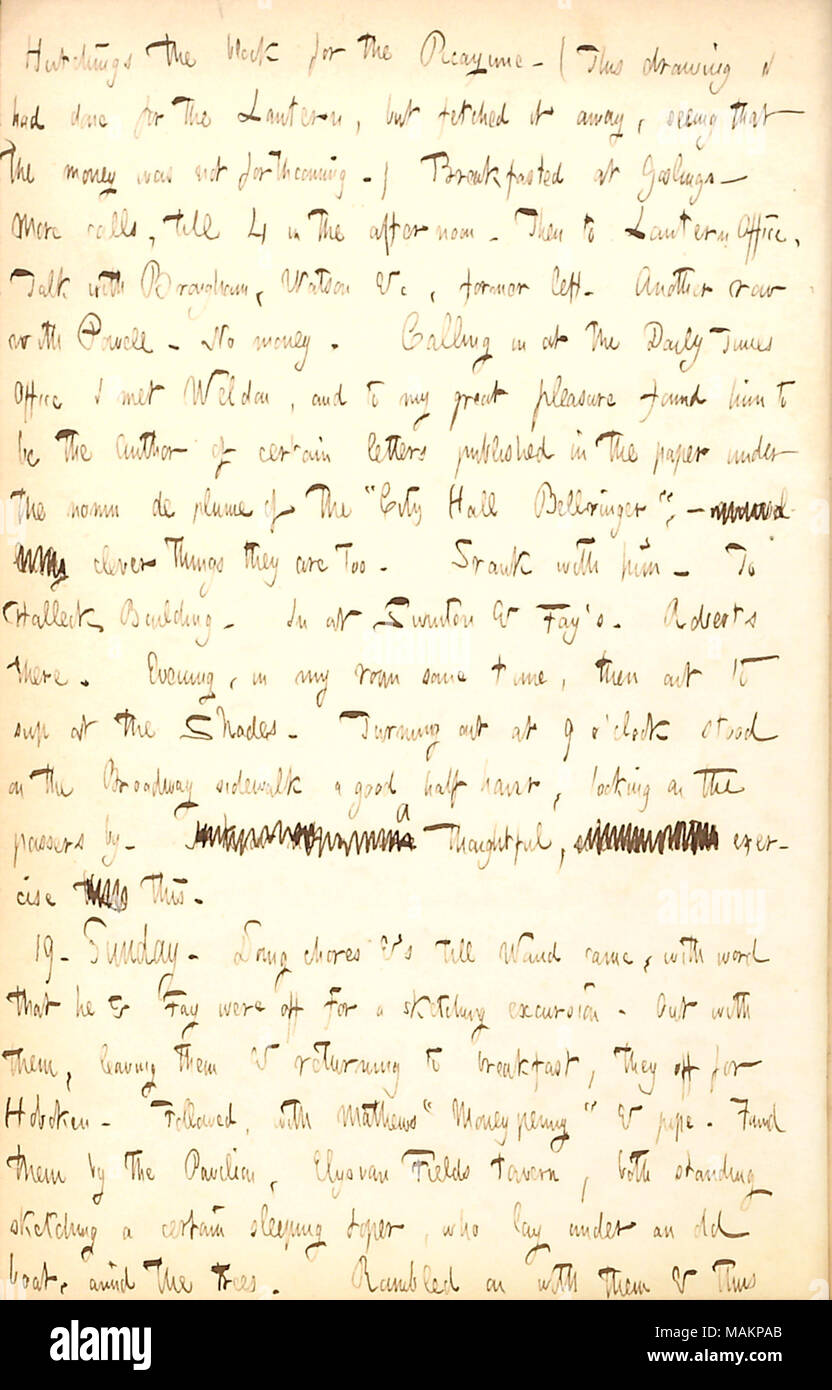 Hutchings the block for the Picayune - ( This drawing I
had done for the Lantern, but fetched it away, seeing that
the money was not forthcoming - ) Breakfasted at Goslings -
More calls, till 4 in the afternoon - Then to Lantern Office,
Talk with Brougham, Watson &c, former left - Another row
with Powell - No money. Calling in at the Daily Times
Office I met Weldon, and to my great pleasure found him to
be the author of certain letters published in the paper under
the nomn de plume of the "City Hall Bellringer", -
clever things they are too - Drank with him - To
Halleck Building - In at Swinton & Fay's. Roberts
there. Evening, in my room some time, then out to
sup at the Shades - Turning out at 9 o'clock stood
on the Broadway sidewalk a good half hour, looking on the
passers by - a thoughtful, exer-
cise this -
19 - Sunday - Doing chores &s till Waud came, with word
that he & Fay were off for a sketching excursion - Out with
them, leaving them & returning to breakfast, they off for
Hoboken - Followed, with Mathews "Moneypenny" & pipe. Found
them by the Pavilion, Elysian Fields tavern, both standing
sketching a certain sleeping toper, who lay under an old
boat, amid the trees. Rambled on with them & thus
alamy
Image ID: MAKPAB
www.alamy.com